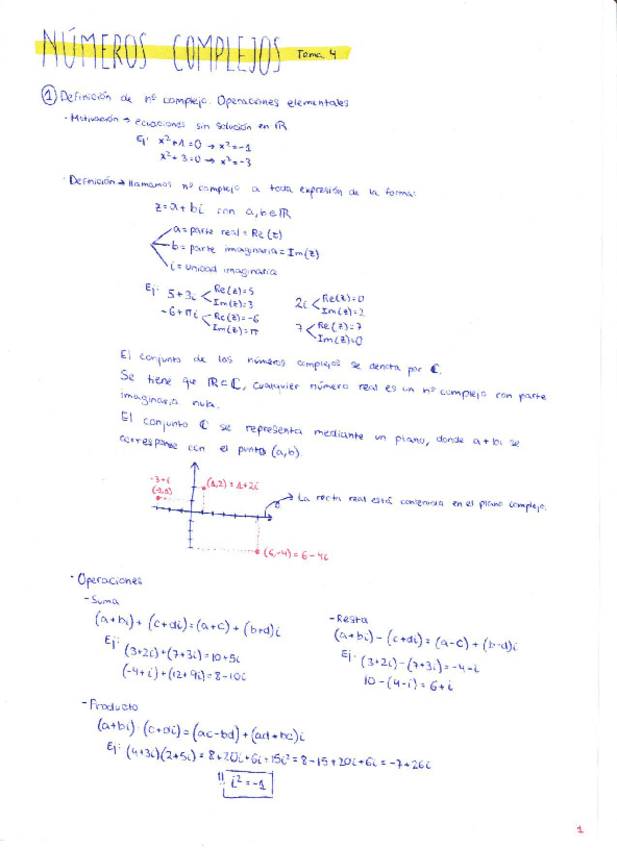 NÚMEROS COMPLEJOS Tema 4
① Definición de nº complejo. Operaciones elementales
· Motivación → ecuaciones sin solución en ℝ
Ej: x²+1=0 → x²=-1
x²+3=0 → x²=-3
· Definición → llamamos nº complejo a toda expresión de la forma:
z=a+bi con a,b∈ℝ
a=parte real=Re(z)
b=parte imaginaria=Im(z)
i=unidad imaginaria
Ej: 5+3i Re(z)=5 Im(z)=3
2i Re(z)=0 Im(z)=2
-6+πi Re(z)=-6 Im(z)=π
7 Re(z)=7 Im(z)=0
El conjunto de los números complejos se denota por ℂ.
Se tiene que ℝ⊂ℂ, cualquier número real es un nº complejo con parte
imaginaria nula.
El conjunto ℂ se representa mediante un plano, donde a+bi se
corresponde con el punto (a,b).
-3+i
(1,2)=1+2i
La recta real está contenida en el plano complejo.
(6,-4)=6-4i
· Operaciones
- Suma
(a+bi)+(c+di)=(a+c)+(b+d)i
Ej: (3+2i)+(7+3i)=10+5i
(-4+i)+(12+9i)=8-10i
- Resta
(a+bi)-(c+di)=(a-c)+(b-d)i
Ej: (3+2i)-(7+3i)=-4-i
10-(4-i)=6+i
- Producto
(a+bi)·(c+di)=(ac-bd)+(ad+bc)i
Ej: (4+3i)(2+5i)=8+20i+6i+15i²=8-15+20i+6i=-7+26i
!! i²=-1
1